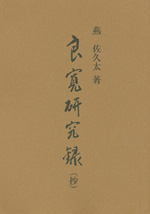 燕 佐久太 著
良寛研究録
(抄)